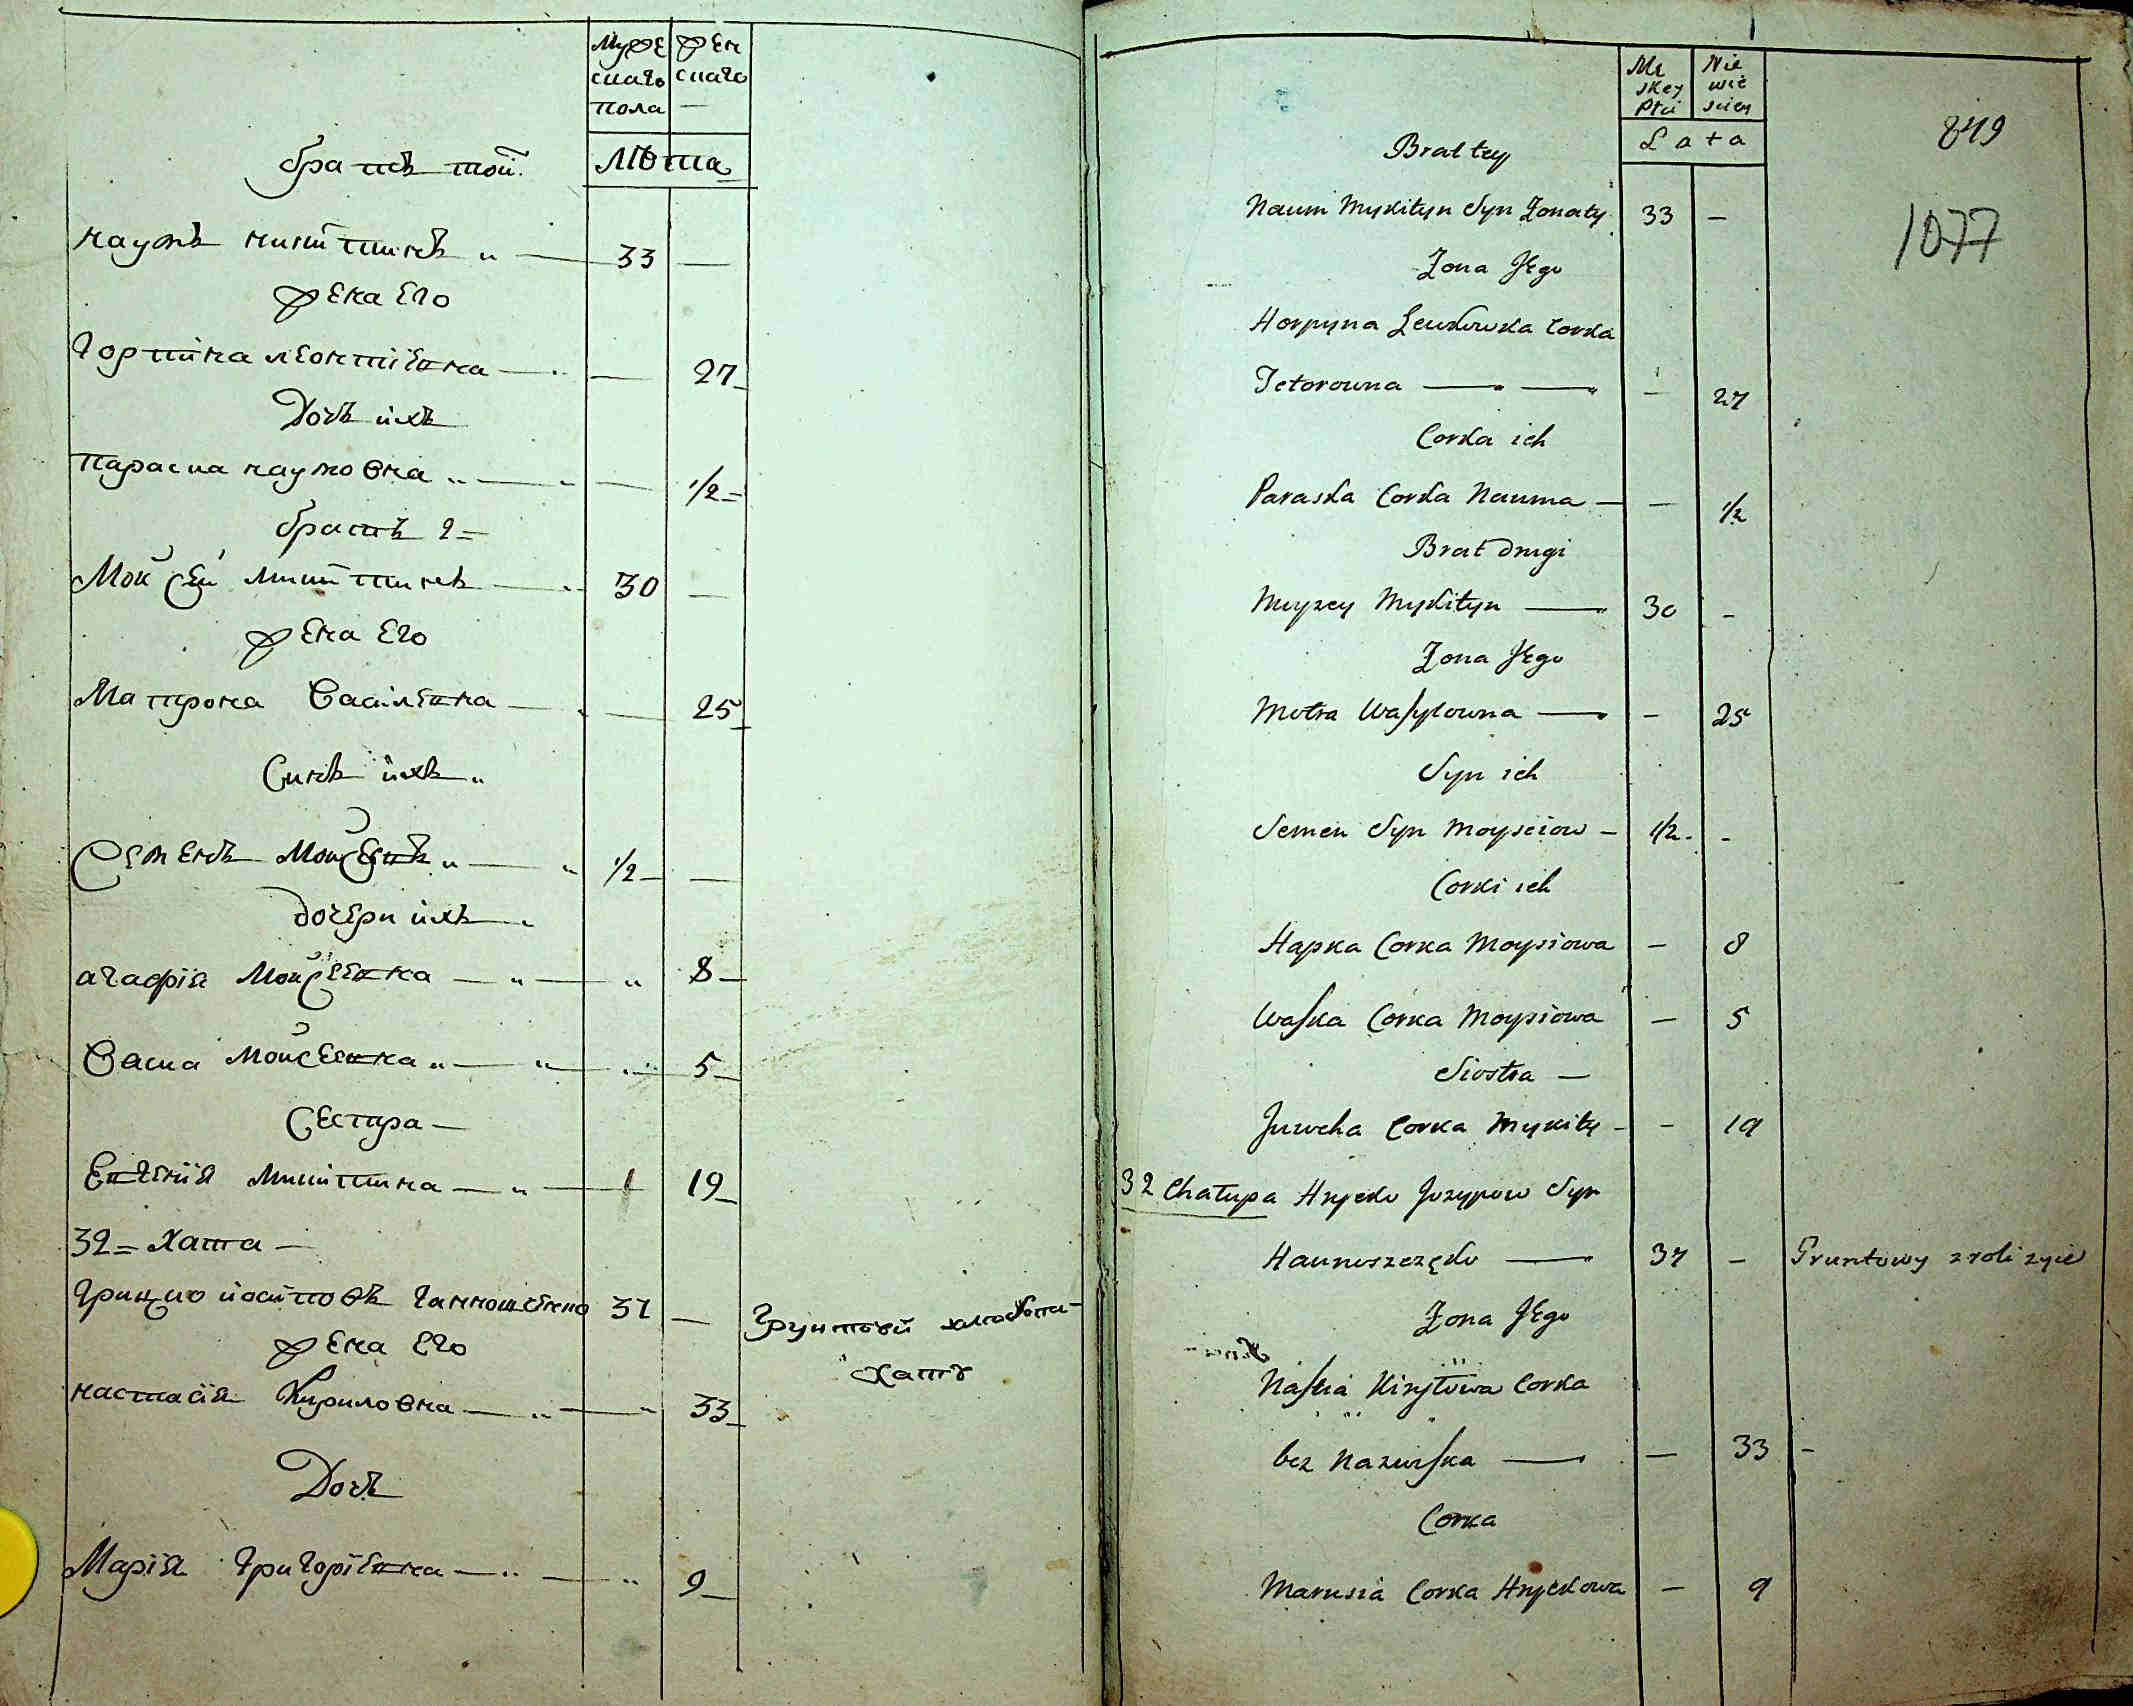 Муже
ского
пола
жен
ского
—
Лѣта
братъ той
наумъ никитинъ „ — 33 —
жена Его
горпина леонтіевна — — 27
Дочъ ихъ
параска наумовна „ — — 1/2
братъ 2
Мойсей никитинъ — 30 —
жена Его
Матрона Василевна — — 25
Синъ ихъ „
Семенъ Мойсеевъ „ — 1/2 —
дочери ихъ
агафія Мойсеевна — „ — „ 8
Васка Мойсеевна „ — „ — „ 5
Сестра —
Евгенія никитина — „ — 19
32 = Хата —
грицко йосиповъ ганнощенко 37 — грунтовій
жена Его
хату
настасія Кириловна — „ — „ 33
Дочъ
Марія григоріевна — „ — „ 9
Me
skey
Płci
Nie
wie
sciey
Lata
849
1077
Brat tey
Naum Mykityn Syn Żonaty 33 —
Żona Jego
Horpyna Lewkowska Corka
Fetorowna — — — 27
Corka ich
Paraska Corka Nauma — — 1/2
Brat drugi
Moyzey Mykityn — 30 —
Żona Jego
Motra Wasylowna — — 25
Syn ich
Semen Syn Moysciow — 1/2 —
Corki ich
Hapka Corka Moysiowa — 8
Waska Corka Moysiowa — 5
Siostra —
Juwcha Corka Mykity — — 19
32 Chałupa Hrycko Jozypow Syn
Haunoszczęko — 37 — Gruntowy z roli zyie
Żona Jego
Nastia Kiryłowa Corka
bez Nazwiska — — 33 —
Corka
Marusia Corka Hryckowa — 9